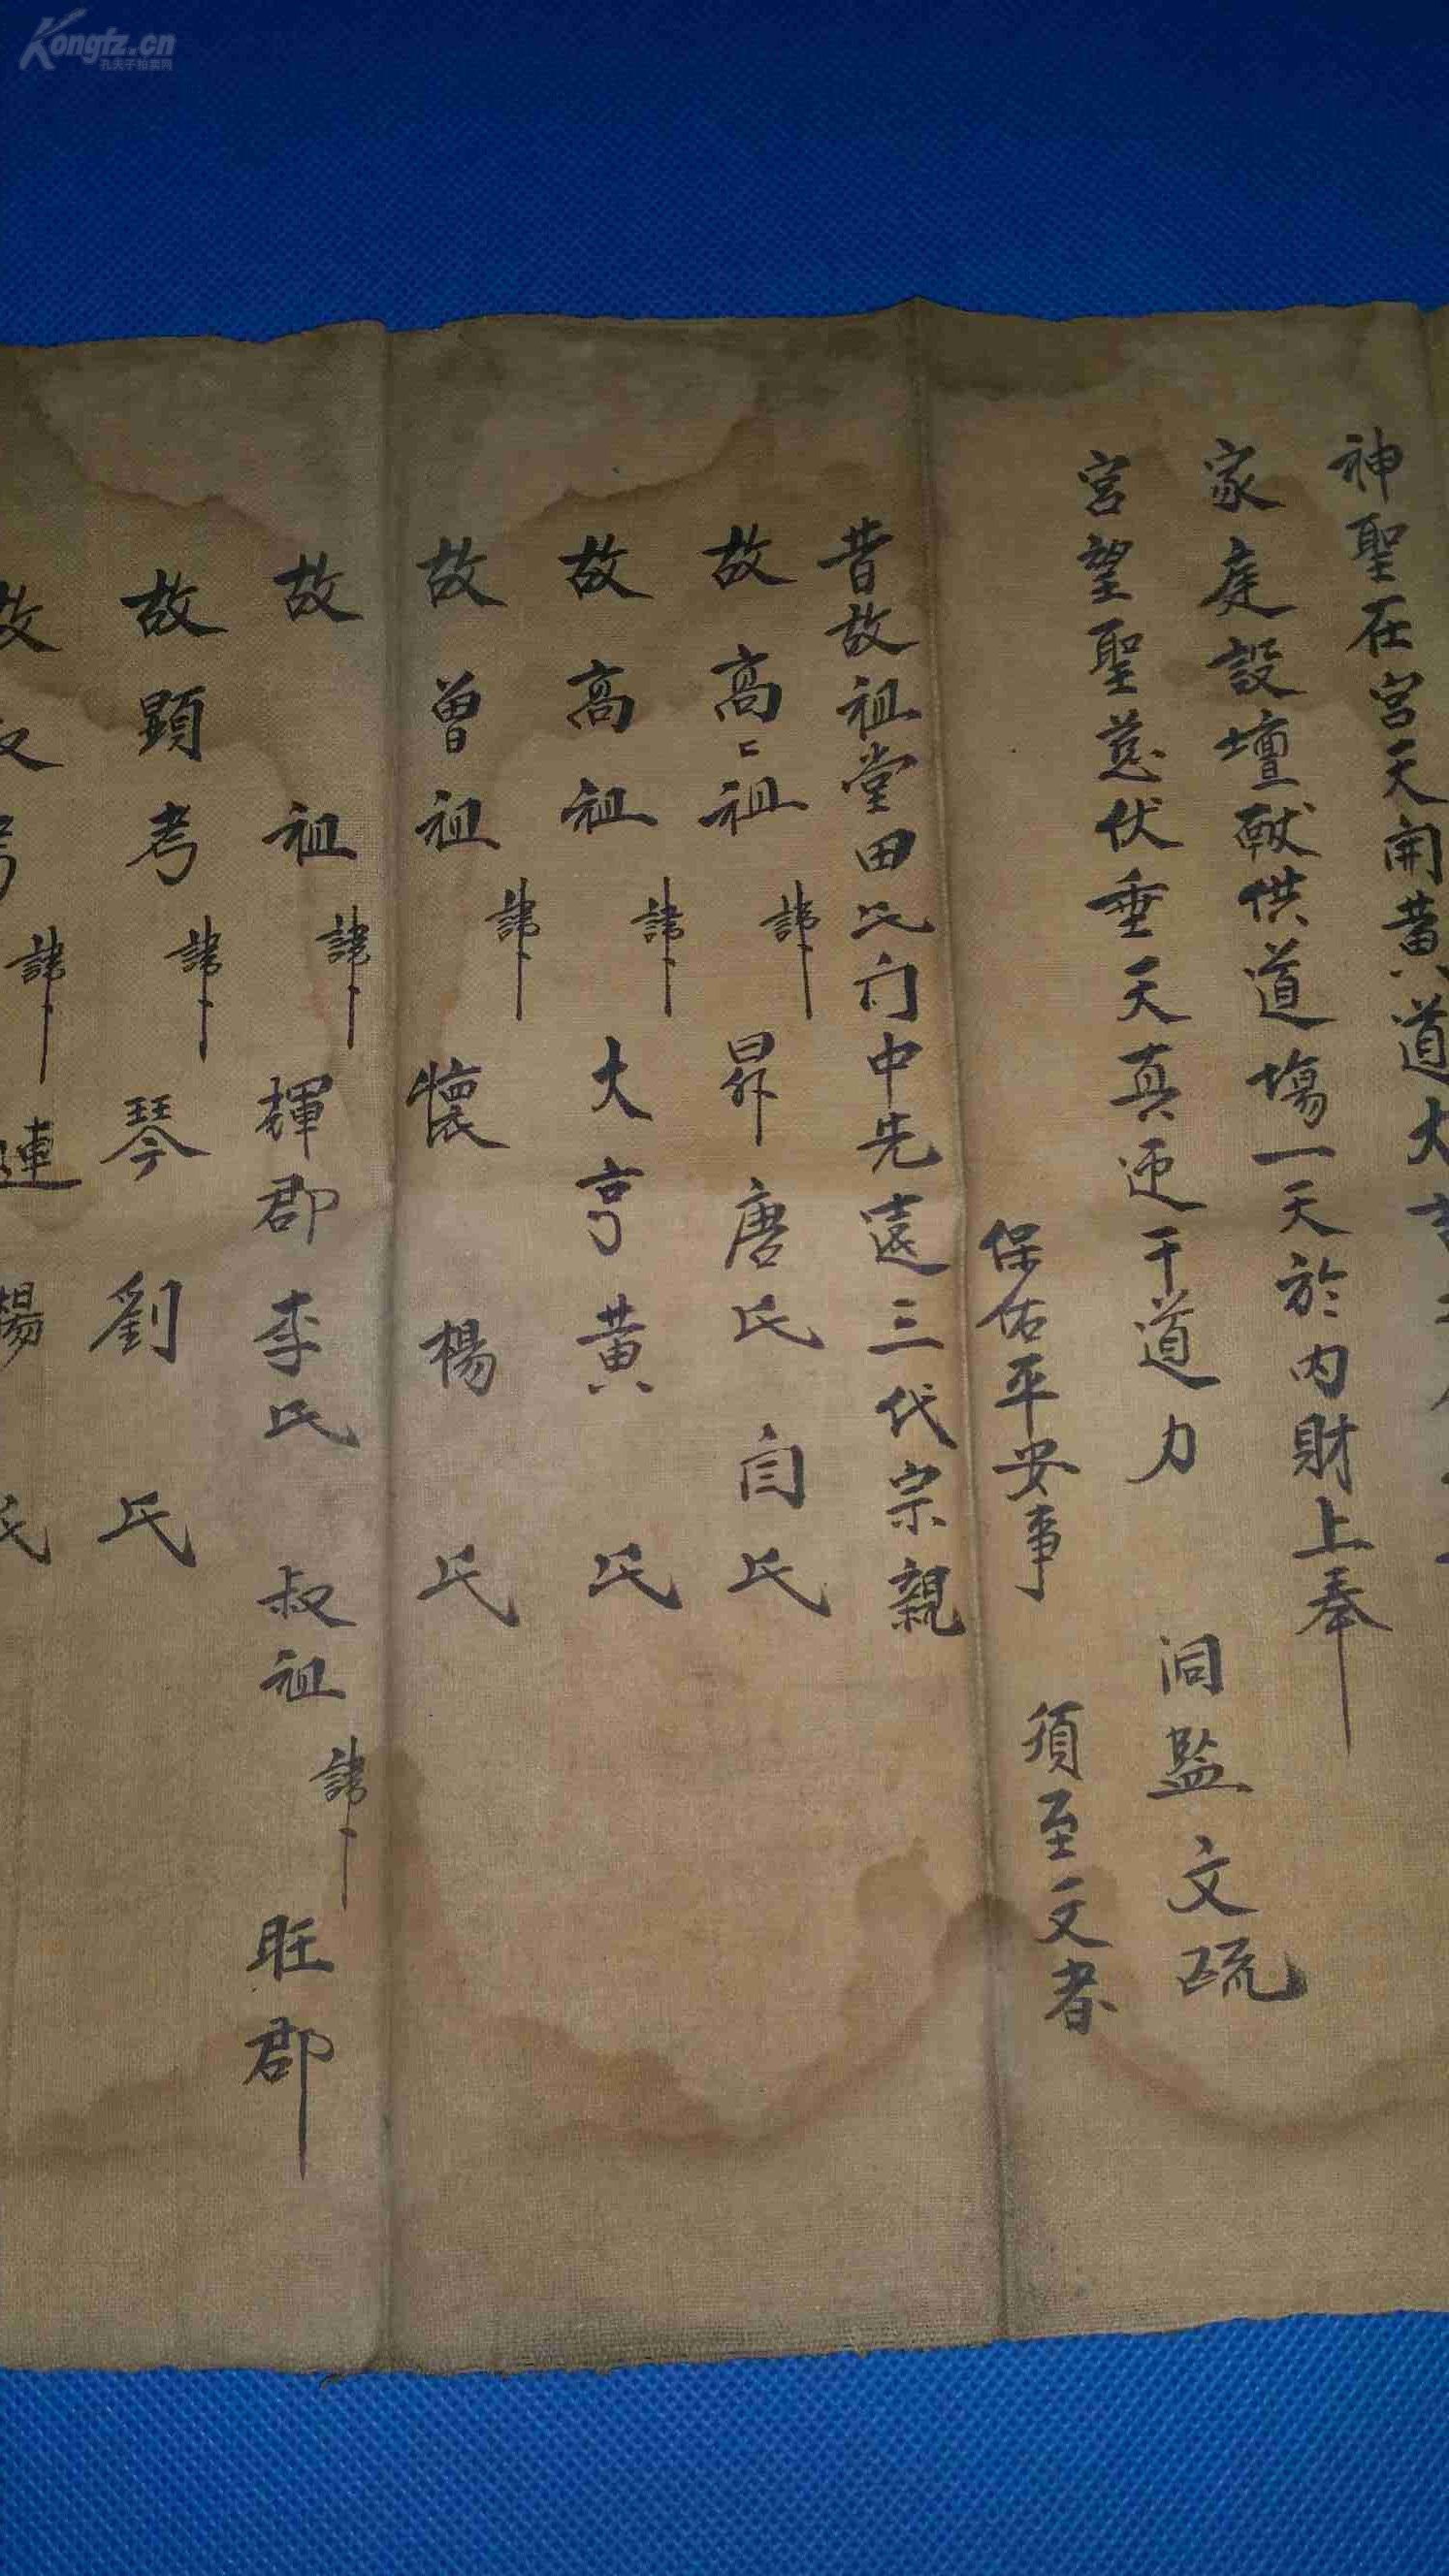 Kongfz.cn
孔夫子拍卖网
神聖在宫天開黄道大吉
家庭設壇献供道塲一天於内財上奉
宫望聖慈伏垂天真迊干道力 洞監文疏
保佑平安事 須至文者
昔故祖堂田氏门中先遠三代宗親
故高〻祖諱 昇唐氏 自氏
故高祖諱 大亨黄氏
故曾祖諱 懷楊氏
故祖諱 輝郡李氏 叔祖諱 旺郡
故顕考諱 琴劉氏
故叔考諱 連楊氏